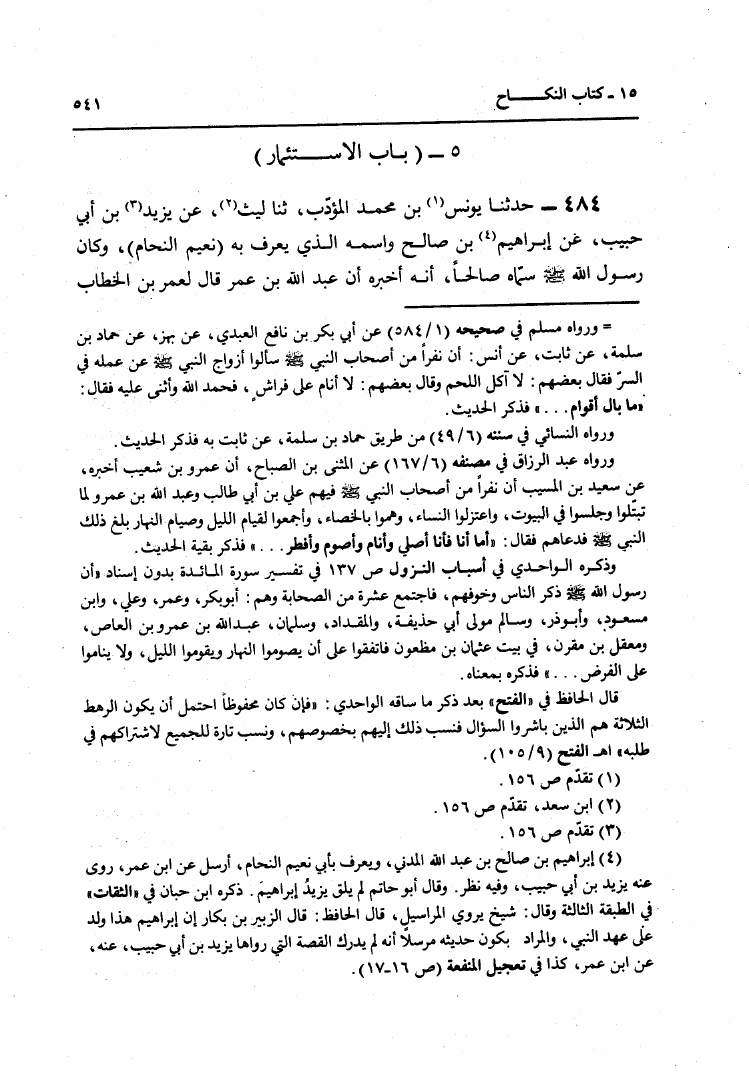 ١٥ ـ كتاب النكـــــاح ٥٤١
٥ ــ ( بـاب الاســـتئمار )
٤٨٤ ــ حدثنـا يونس(١) بن محمد المؤدّب، ثنا ليث(٢)، عن يزيد(٣) بن أبي
حبيب، عن إبـراهيم(٤) بن صالـح واسمـه الـذي يعرف به (نعيم النحام)، وكان
رسـول الله ﷺ سمّاه صالحـاً، أنـه أخبره أن عبد الله بن عمر قال لعمر بن الخطاب
= ورواه مسلم في صحيحه (٥٨٤/١) عن أبي بكر بن نافع العبدي، عن بهز، عن حماد بن
سلمة، عن ثابت، عن أنس: أن نفراً من أصحاب النبي ﷺ سألوا أزواج النبي ﷺ عن عمله في
السرّ فقال بعضهم: لا آكل اللحم وقال بعضهم: لا أنام على فراش، فحمد الله وأثنى عليه فقال:
«ما بال أقوام...» فذكر الحديث.
ورواه النسائي في سننه (٤٩/٦) من طريق حماد بن سلمة، عن ثابت به فذكر الحديث.
ورواه عبد الرزاق في مصنفه (١٦٧/٦) عن المثنى بن الصباح، أن عمرو بن شعيب أخبره،
عن سعيد بن المسيب أن نفراً من أصحاب النبي ﷺ فيهم علي بن أبي طالب وعبد الله بن عمرو لما
تبتّلوا وجلسوا في البيوت، واعتزلوا النساء، وهموا بالخصاء، وأجمعوا لقيام الليل وصيام النهار بلغ ذلك
النبي ﷺ فدعاهم فقال: «أما أنا فأنا أصلي وأنام وأصوم وأفطر...» فذكر بقية الحديث.
وذكـره الـواحدي في أسباب النـزول ص ١٣٧ في تفسـير سورة المـائدة بدون إسناد «أن
رسول الله ﷺ ذكر الناس وخوفهم، فاجتمع عشرة من الصحابة وهم: أبوبكر، وعمر، وعلي، وابن
مسعود، وأبوذر، وسـالم مولى أبي حذيفـة، والمقـداد، وسلمان، عبدالله بن عمرو بن العاص،
ومعقل بن مقرن، في بيت عثمان بن مظعون فاتفقوا على أن يصوموا النهار ويقوموا الليل، ولا يناموا
على الفرض...» فذكره بمعناه.
قال الحافظ في «الفتح» بعد ذكر ما ساقه الواحدي: «فإن كان محفوظاً احتمل أن يكون الرهط
الثلاثة هم الذين باشروا السؤال فنسب ذلك إليهم بخصوصهم، ونسب تارة للجميع لاشتراكهم في
طلبه» اهـ الفتح (١٠٥/٩).
(١) تقدّم ص ١٥٦.
(٢) ابن سعد، تقدّم ص ١٥٦.
(٣) تقدّم ص ١٥٦.
(٤) إبراهيم بن صالح بن عبد الله المدني، ويعرف بأبي نعيم النحام، أرسل عن ابن عمر، روى
عنه يزيد بن أبي حبيب، وفيه نظر. وقال أبو حاتم لم يلق يزيدُ إبراهيمَ. ذكره ابن حبان في «الثقات»
في الطبقة الثالثة وقال: شيخ يروي المراسيل، قال الحافظ: قال الزبير بن بكار إن إبراهيم هذا ولد
على عهد النبي، والمراد بكون حديثه مرسلاً أنه لم يدرك القصة التي رواها يزيد بن أبي حبيب، عنه،
عن ابن عمر، كذا في تعجيل المنفعة (ص ١٦-١٧).